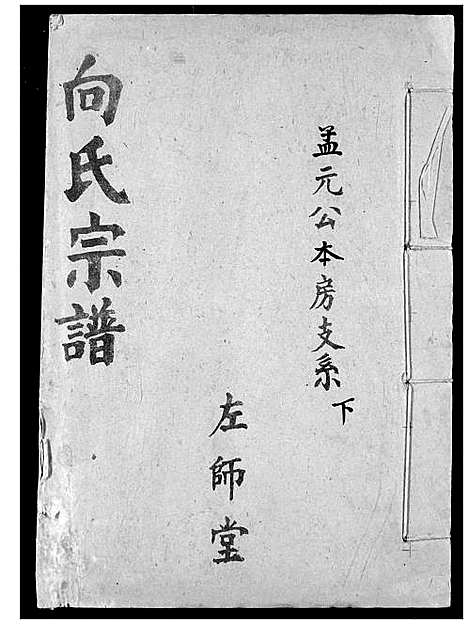 向氏宗譜
孟元公本房支系下
左師堂